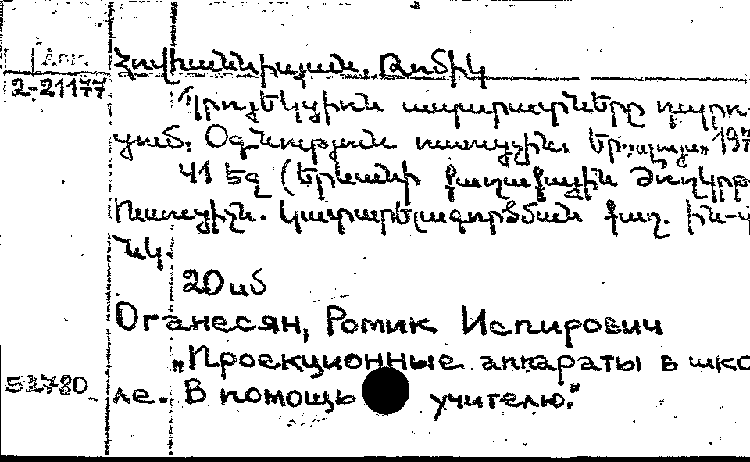 Հովհաննիսյան, Ռոմիկ
2-21177
Պրոյեկցիոն ապարատները դպրո
ցում: Օգնություն ուսուցչին. Եր. 197
41 էջ (Երևանի քաղաքային
Ուսուցիչ. կատարելագործման քաղ. ին-
նկ.
20 սմ
Оганесян, Ромик Испирович
„Проекционные аппараты в шко
53780
ле. В помощь учителю.“